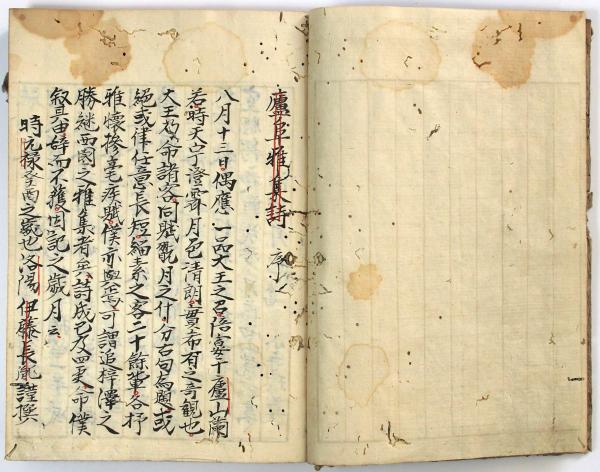 廬阜雅集詩 序
八月十三日偶應一品大王之召陪宴于廬山蘭
若時天宇澄霽月色清朗實希有之奇觀也
大王乃命諸客同賦翫月之什分古句為題或
絕或律任意長短緇素之客二十餘輩各抒
雅懷摻毫疾賦僕亦與焉可謂追梓澤之
勝継西園之雅集者矣詩成已及四更命僕
叙其由辞而不獲因記之歳月云
時元禄癸酉之歳也洛陽伊藤長胤謹撰